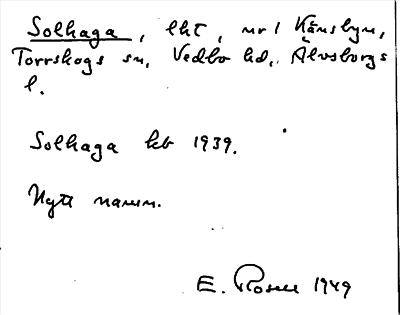 Solhaga, lht, nr 1 Kånsbyn,
Torrskogs sn, Vedbo hd, Älvsborgs
l.
Solhaga kb 1939.
Nytt namn.
E. Rosell 1949